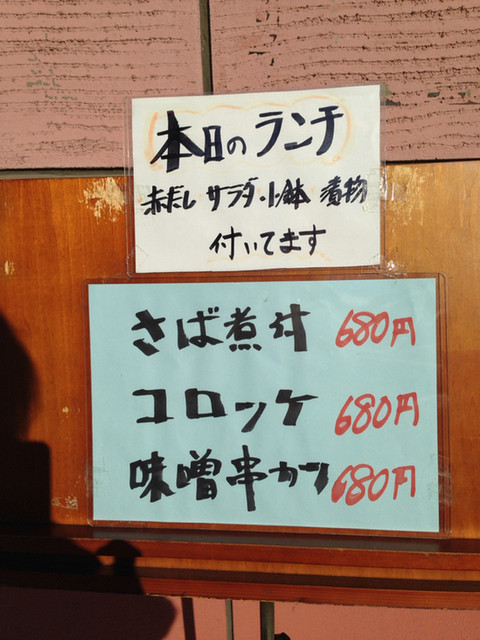 本日のランチ
赤だし サラダ・小鉢 煮物
付いてます
さば煮付 680円
コロッケ 680円
味噌串カツ 680円